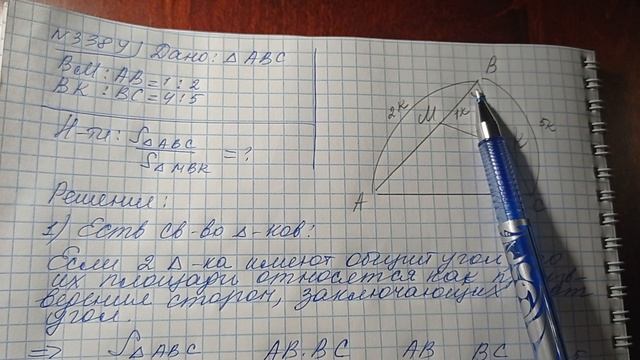 №3389) Дано: △ABC
BM : AB = 1 : 2
BK : BC = 4 : 5
Н-ти: S△ABC
S△MBK = ?
B
2k
M
1k
5k
A
Решение:
1) Есть св-во △-ков:
Если 2 △-ка имеют общий угол
их площади относятся как
ведения сторон, заключающих
угол.
=> S△ABC AB·BC AB BC 5